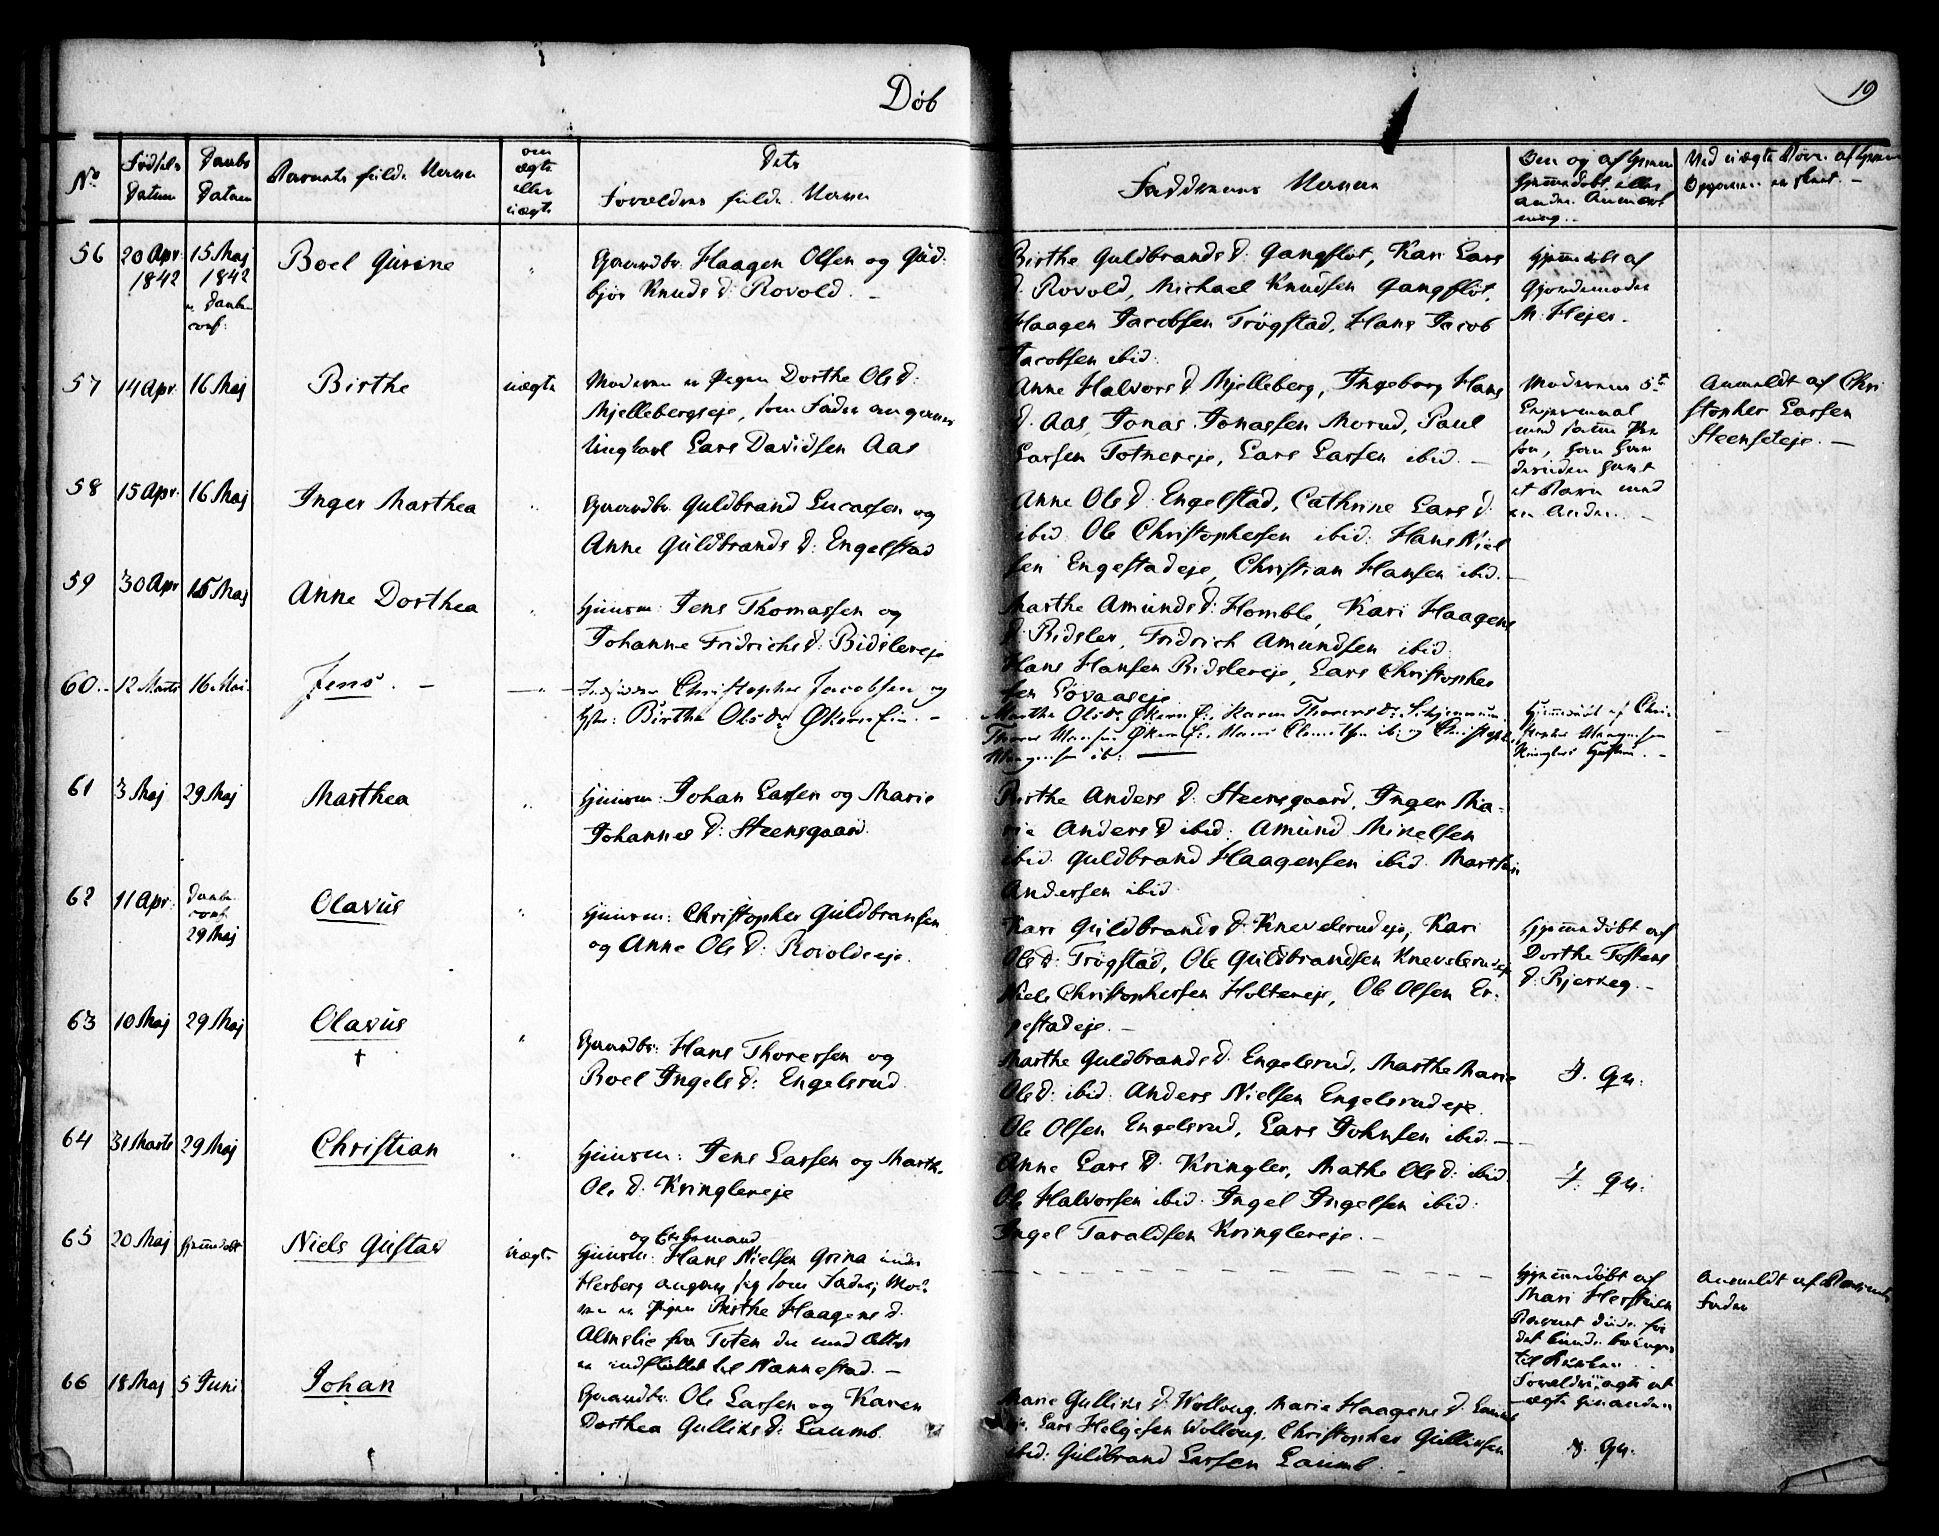 Døb
19
No
Fødsels Datum
Daabs Datum
Barnets fulde Navn
om ægte eller uægte
Dets Forældres fulde Navn
Faddernes Navne
56
20 Apr 1842
15 Maj 1842
Boel Gurine
"
Gaardbr: Haagen Olsen og Gud-
bjør Knuds D: Rovold. –
Birthe Guldbrands D: Gangfløt, Kari Lars
D. Rovold, Michael Knudsen Gangfløt,
Haagen Jacobsen Trøgstad, Hans Jacob
Jacobsen ibid:
Hjemmedøbt af
Gjordemoder
M: Hejer.
57
14 Apr
16 Maj
Birthe
uægte
Moderen er Pigen Dorthe Ols D:
Mjellebergseje, som Fader angives
Ungkarl Lars Davidsen Aas
Anne Halvors D Mjelleberg, Ingeborg Hans
D. Aas, Jonas Jonassen Morud, Paul
Larsen Totnereje, Lars Larsen ibid. –
Moderens 5te
Lejermaal
med samme Per
son, han har
desuden havt
et Barn med
en Anden. –
Anmeldt af Chri
stopher Larsen
Steenseteje. –
58
15 Apr.
16 Maj
Inger Marthea
"
Gaardbr: Guldbrand Lucassen og
Anne Guldbrands D: Engelstad
Anne Ols D: Engelstad, Cathrine Lars D:
ibid: Ole Christophersen ibid: Hans Niel
sen Engestadeje, Christian Hansen ibid. –
59
30 Apr
15 Maj
Anne Dorthea
"
Huusm: Jens Thomassen og
Johanne Fridrichs D: Bidslereje
Marthe Amunds D: Homble, Kari Haagens
D: Bidsler, Fridrich Amundsen ibid:
Hans Hansen Bidslereje, Lars Christopher
sen Løvaaseje
60. –
12 Marts
16 Mai.
Jens. –
"
Christopher Jacobsen og
Birthe Olsdr Økern –
Marthe Olsdr Økern Karen Thoresdr
61
3 Maj
29 Maj
Marthea
"
Huusm: Johan Larsen og Marie
Johannes D: Steensgaard.
Birthe Anders D: Steensgaard, Inger Ma-
rie Anders D ibid: Amund Mikelsen
ibid: Guldbrand Haagensen ibid: Marthin
Andersen ibid:
62
11 Apr:
Daabs conf. 29 Maj
Olavus
"
Huusm: Christopher Guldbransen
og Anne Ols D: Rovoldeeje.
Kari Guldbrands D: Knevelsrudeje, Kari
Ols D: Trøgstad, Ole Guldbrandsen Knevelsrudeje
Niels Christophersen Holtereje, Ole Olsen En-
gestadeje. –
Hjemmedøbt af
Dorthe Tostens
D: Bjerkeg. –
63
10 Maj
29 Maj
Olavus
†
"
Gaardbr: Hans Thoresen og
Boel Ingels D: Engelsrud.
Marthe Guldbrands D: Engelsrud, Marthe Marie
Ols D: ibid: Anders Nielsen Engelsrudeje
Ole Olsen Engelsrud, Lars Johnsen ibid. –
64
31 Marts
29 Maj
Christian
"
Huusm: Jens Larsen og Marth.
Ols D: Kringlereje
Anne Lars D: Kringler, Mathe Ols D: ibid
Ole Halvorsen ibid: Ingel Ingelsen ibid:
Ingel Taraldsen Kringlereje. –
65
20 Maj
hjemmedøbt
Niels Gustav
uægte
og Enkemand
Huusm: Hans Nielsen Grina under
Herberg angiver sig som Fader; Mode
ren er Pigen Birthe Haagens D:
Almelie fra Toten der med Attest
er indflyttet til Nannestad. –
Hjemmedøbt af
Mari Herstuen
Barnet døde før
det kunde bringes
til Kirken.
Anmeldt af Barnets
Fader
66
18 Maj
5 Juni
Johan
Gaardbr: Ole Larsen og Karen
Dorthea Gulliks D: Laumb.
Marie Gulliks D: Wolloug, Marie Haagens D: Laumb
eje, Lars Helgesen Wolloug, Christopher Gulliksen
ibid: Guldbrand Larsen Laumb. –